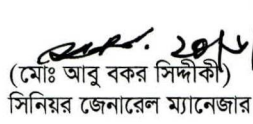 (মোঃ আবু বকর সিদ্দীকী)
সিনিয়র জেনারেল ম্যানেজার